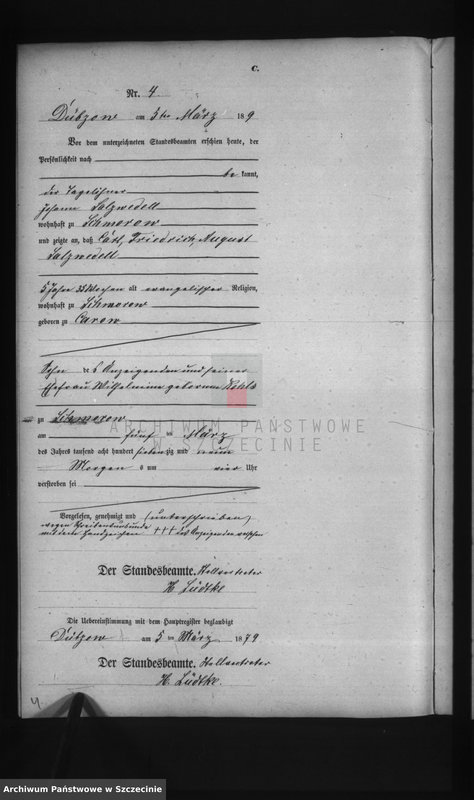 C.
Nr. 4
am 5 ten März 1879
Vor dem unterzeichneten Standesbeamten erschien heute, der
Persönlichkeit nach
be kannt,
der Tagelöhner
Johann Salzwedell
wohnhaft zu Schmorow
und zeigte an, daß Carl, Friedrich, August
Salzwedell
5 Jahre 33 Wochen alt evangelischer Religion,
wohnhaft zu Schmorow
geboren zu Carow
Sohn des Anzeigenden und seiner
Ehefrau Wilhelmine geborenen
zu Schmorow
am fünf ten März
des Jahres tausend acht hundert siebenzig und neun
Morgen um vier Uhr
verstorben sei
Vorgelesen, genehmigt und (unterschrieben)
wegen Schreibensunkunde
mit dem Handzeichen +++ des Anzeigenden versehen
Der Standesbeamte. Stellvertreter
H. Lüdtke
Die Uebereinstimmung mit dem Hauptregister beglaubigt
am 5 ten März 1879
Der Standesbeamte. Stellvertreter
H. Lüdtke.
4
ARCHIWUM PAŃSTWOWE
W SZCZECINIE
Archiwum Państwowe w Szczecinie